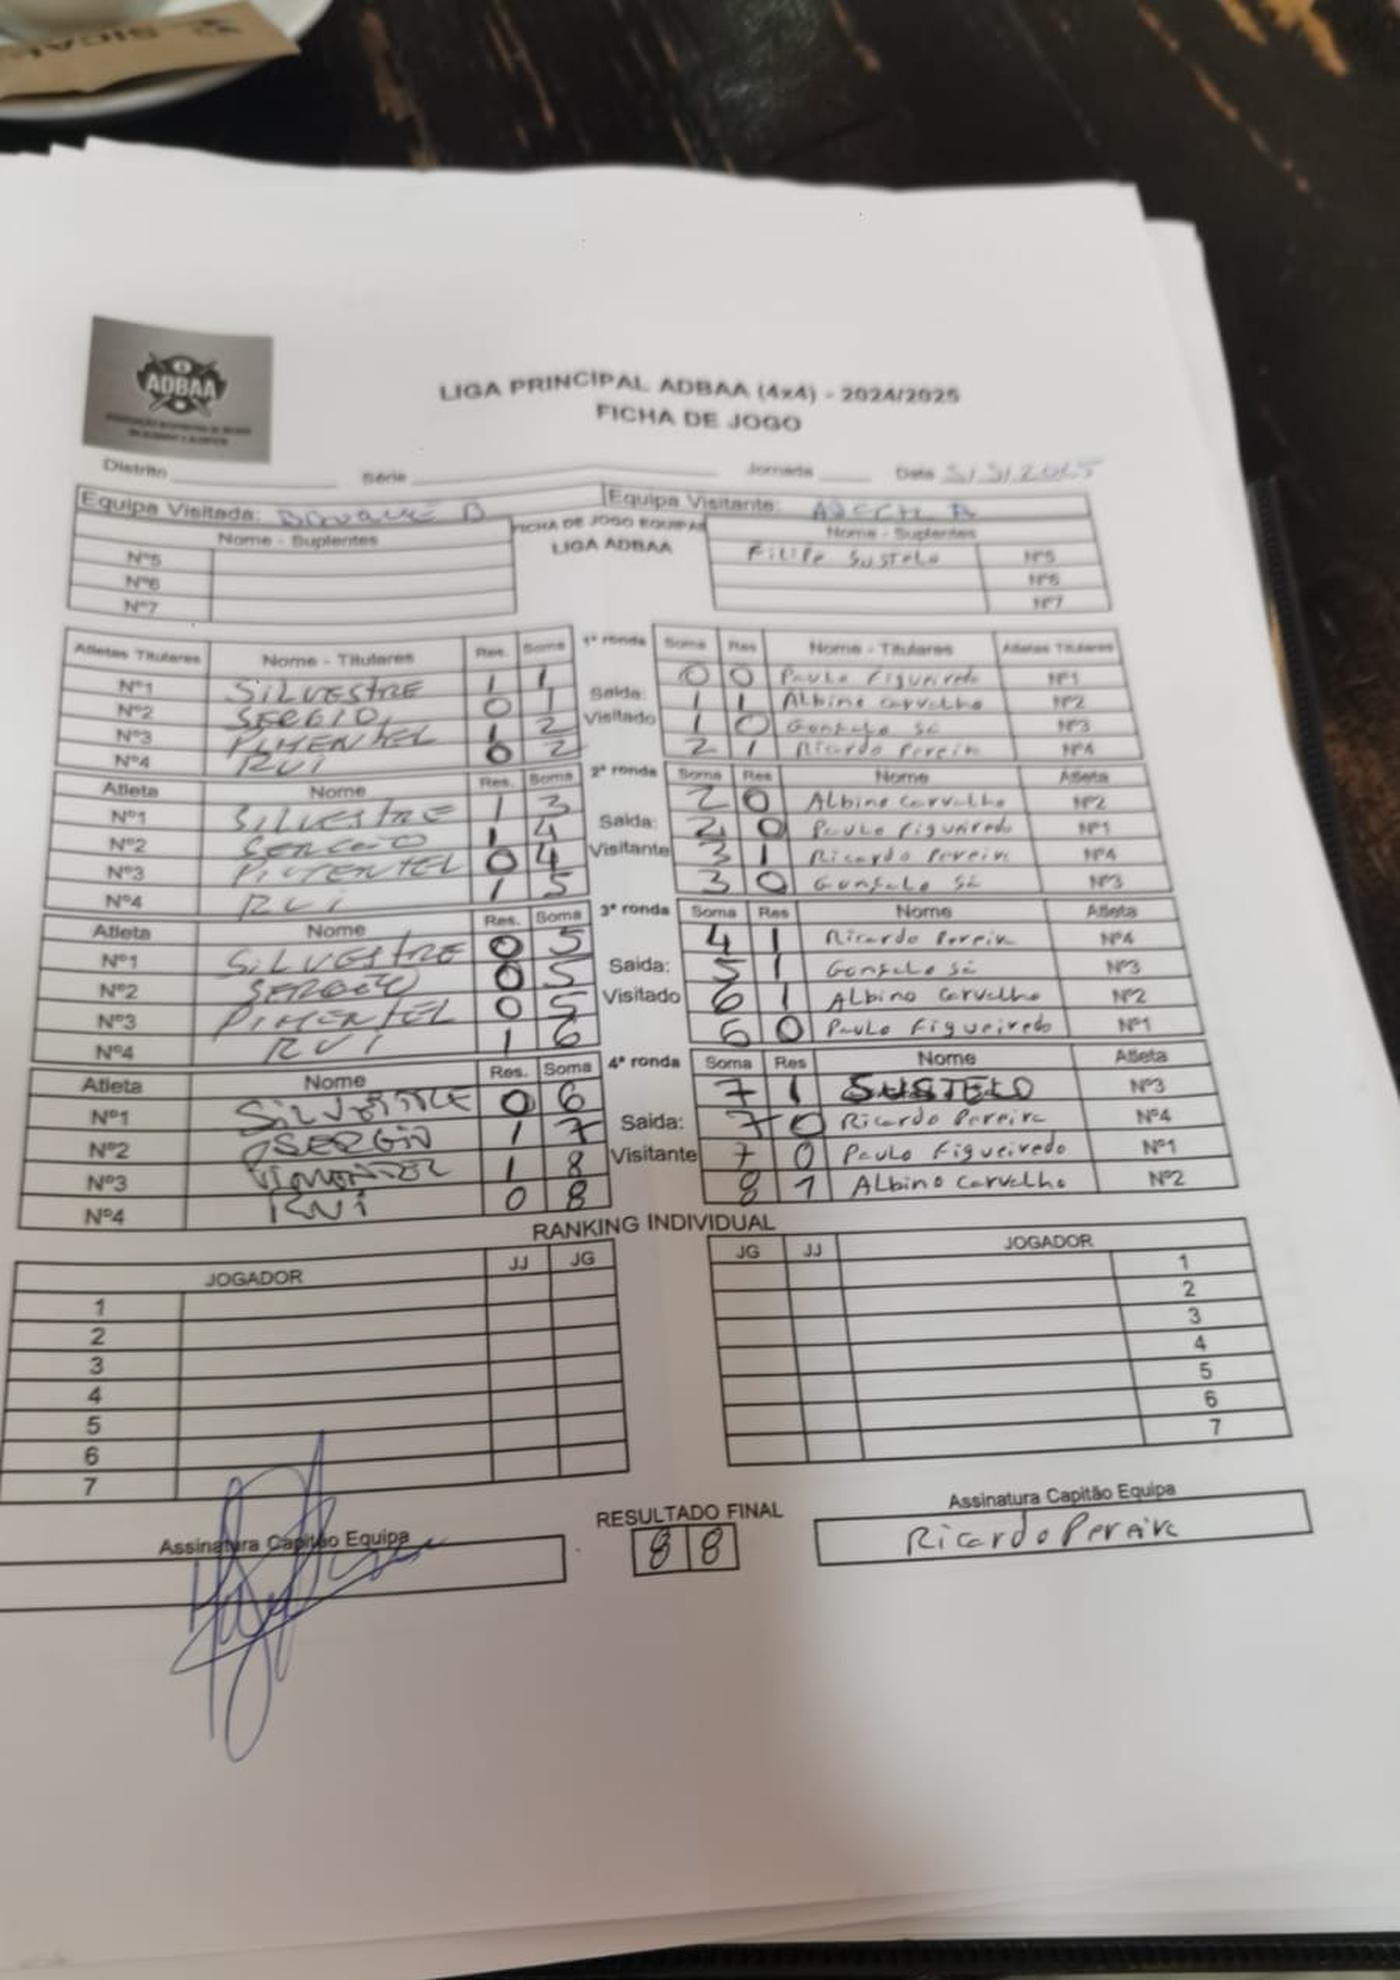 SICAL
ADBAA
LIGA PRINCIPAL ADBAA (4x4) - 2024/2025
FICHA DE JOGO
Distrito Série Jornada Data
Equipa Visitada: B Equipa Visitante:
Nome - Suplentes FICHA DE JOGO EQUIPAS Nome - Suplentes
LIGA ADBAA
Nº5 Filipe Sustelo Nº5
Nº6 Nº6
Nº7 Nº7
Atletas Titulares Nome - Titulares Res. Soma 1ª ronda Soma Res Nome - Titulares Atletas Titulares
Nº1 SILVESTRE 1 1 0 0 Paulo Figueiredo Nº1
Nº2 SERGIO 0 1 Saida: 1 1 Albino Carvalho Nº2
Nº3 PIMENTEL 1 2 Visitado 1 0 Gonçalo Sá Nº3
Nº4 RUI 0 2 2 1 Ricardo Pereira Nº4
Atleta Nome Res. Soma 2ª ronda Soma Res Nome Atleta
Nº1 SILVESTRE 1 3 2 0 Albino Carvalho Nº2
Nº2 SERGIO 1 4 Saida: 2 0 Paulo Figueiredo Nº1
Nº3 PIMENTEL 0 4 Visitante 3 1 Ricardo Pereira Nº4
Nº4 RUI 1 5 3 0 Gonçalo Sá Nº3
Atleta Nome Res. Soma 3ª ronda Soma Res Nome Atleta
Nº1 SILVESTRE 0 5 4 1 Ricardo Pereira Nº4
Nº2 SERGIO 0 5 Saida: 5 1 Gonçalo Sá Nº3
Nº3 PIMENTEL 0 5 Visitado 6 1 Albino Carvalho Nº2
Nº4 RUI 1 6 6 0 Paulo Figueiredo Nº1
Atleta Nome Res. Soma 4ª ronda Soma Res Nome Atleta
Nº1 SILVESTRE 0 6 7 1 SUSTELO Nº3
Nº2 SERGIO 1 7 Saida: 7 0 Ricardo Pereira Nº4
Nº3 PIMENTEL 1 8 Visitante 7 0 Paulo Figueiredo Nº1
Nº4 RUI 0 8 8 1 Albino Carvalho Nº2
RANKING INDIVIDUAL
JOGADOR JJ JG JG JJ JOGADOR
1 1
2 2
3 3
4 4
5 5
6 6
7 7
RESULTADO FINAL
Assinatura Capitão Equipa 8 8 Assinatura Capitão Equipa
Ricardo Pereira